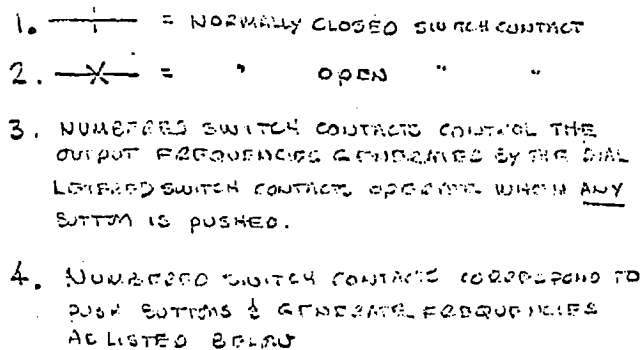 1. = NORMALLY CLOSED SWITCH CONTACT
2. = " OPEN " "
3. NUMBERED SWITCH CONTACTS CONTROL THE
OUTPUT FREQUENCIES GENERATED BY THE DIAL
LETTERED SWITCH CONTACTS OPERATE WHEN ANY
BUTTON IS PUSHED.
4. NUMBERED SWITCH CONTACTS CORRESPOND TO
PUSH BUTTONS & GENERATE FREQUENCIES
AS LISTED BELOW